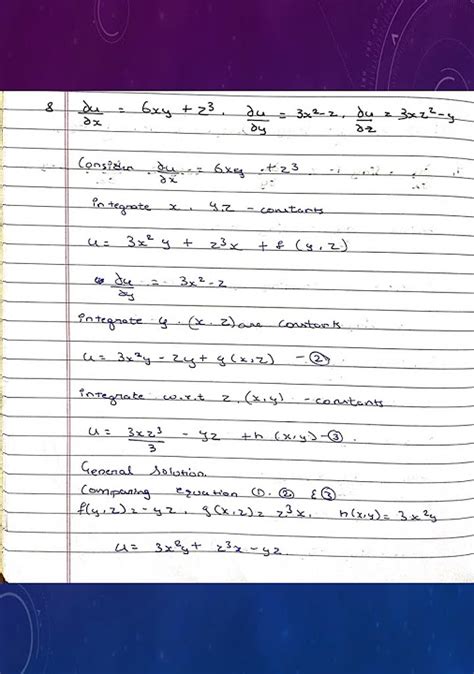 8 ∂u/∂x = 6xy + z³, ∂u/∂y = 3x²-z, ∂u/∂z = 3xz²-y
Consider ∂u/∂x = 6xy + z³
integrate x, y,z - constants
u = 3x²y + z³x + f(y,z)
∂u/∂y = 3x²-z
integrate y. (x,z) are constants
u = 3x²y - zy + g(x,z) - ②
integrate w.r.t z, (x,y) - constants
u = 3xz³/3 - yz + h(x,y) - ③.
General solution.
Comparing equation ①, ② & ③
f(y,z) = -yz, g(x,z) = z³x, h(x,y) = 3x²y
u = 3x²y + z³x - yz.